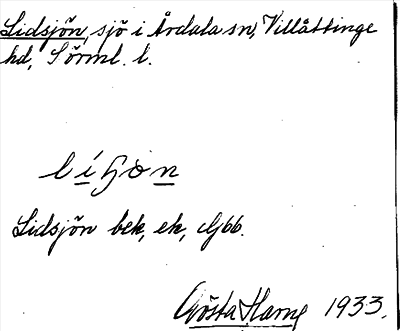 Lidsjön, sjö i Årdala sn, Villåttinge
hd, Sörml. l.
Lidsjön bek, ek,
Gösta Harne 1933.